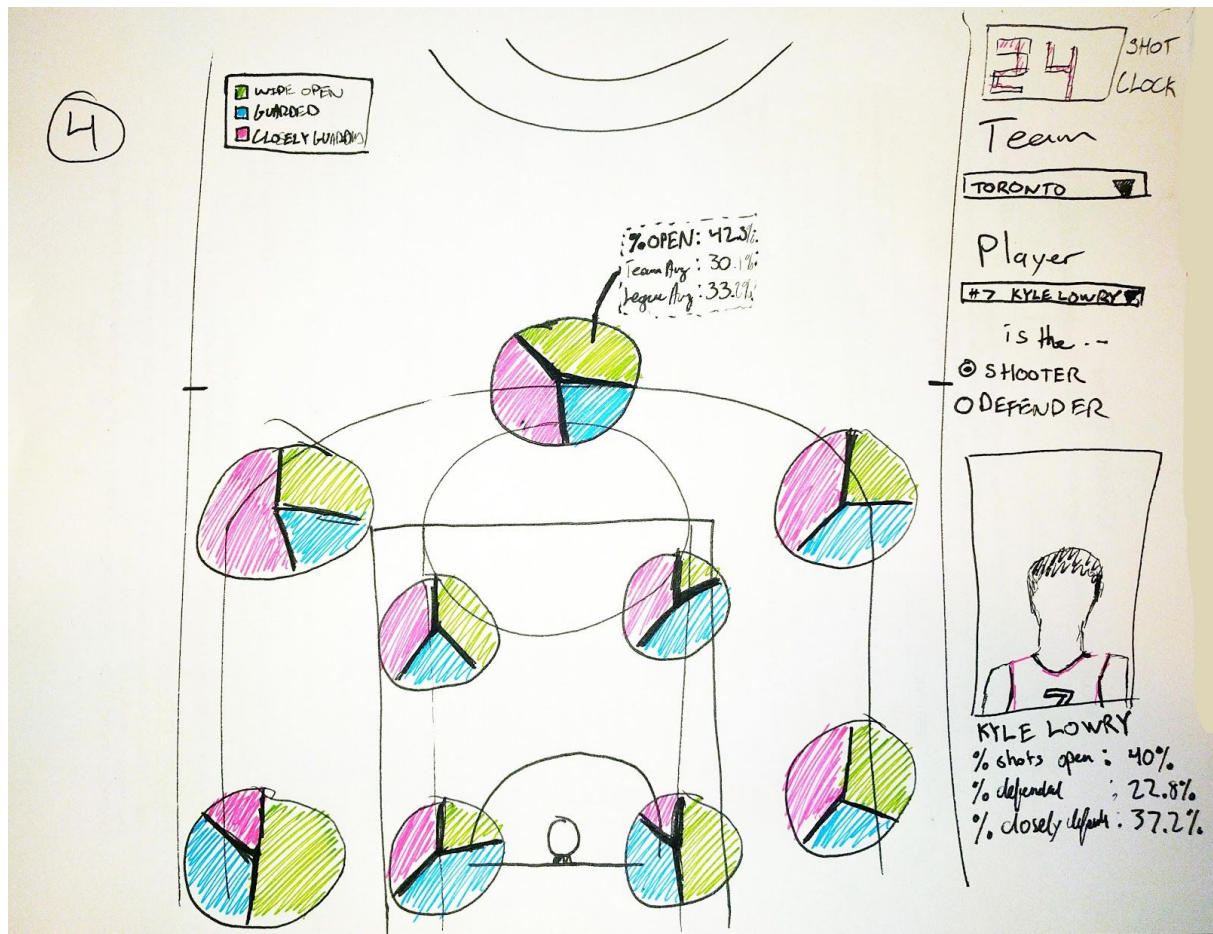 4
WIDE OPEN
GUARDED
CLOSELY GUARDED
%OPEN: 42.3%
Team Avg: 30.1%
Legue Avg: 33.2%
24
SHOT
CLOCK
Team
TORONTO
Player
#7 KYLE LOWRY
is the...
SHOOTER
DEFENDER
7
KYLE LOWRY
% shots open: 40%
% defended: 22.8%
% closely : 37.2%